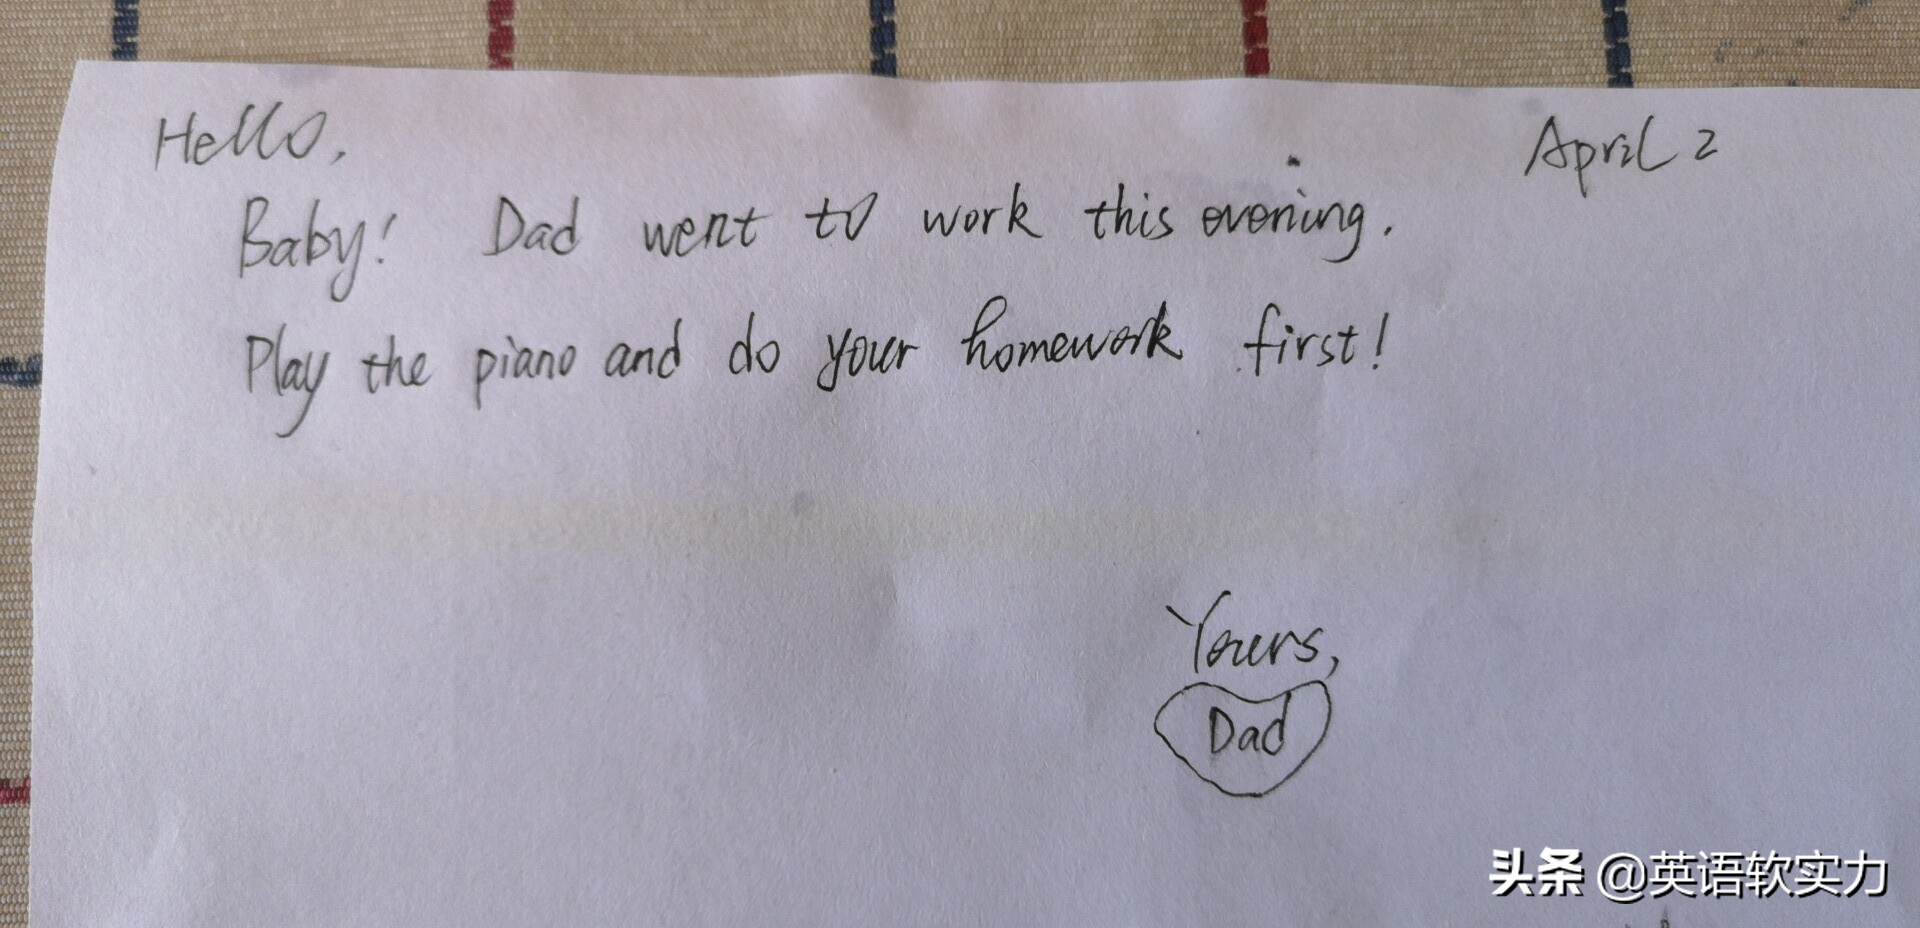 Hello,
April 2
Baby! Dad went to work this evening.
Play the piano and do your homework first!
Yours,
Dad
头条 @英语软实力